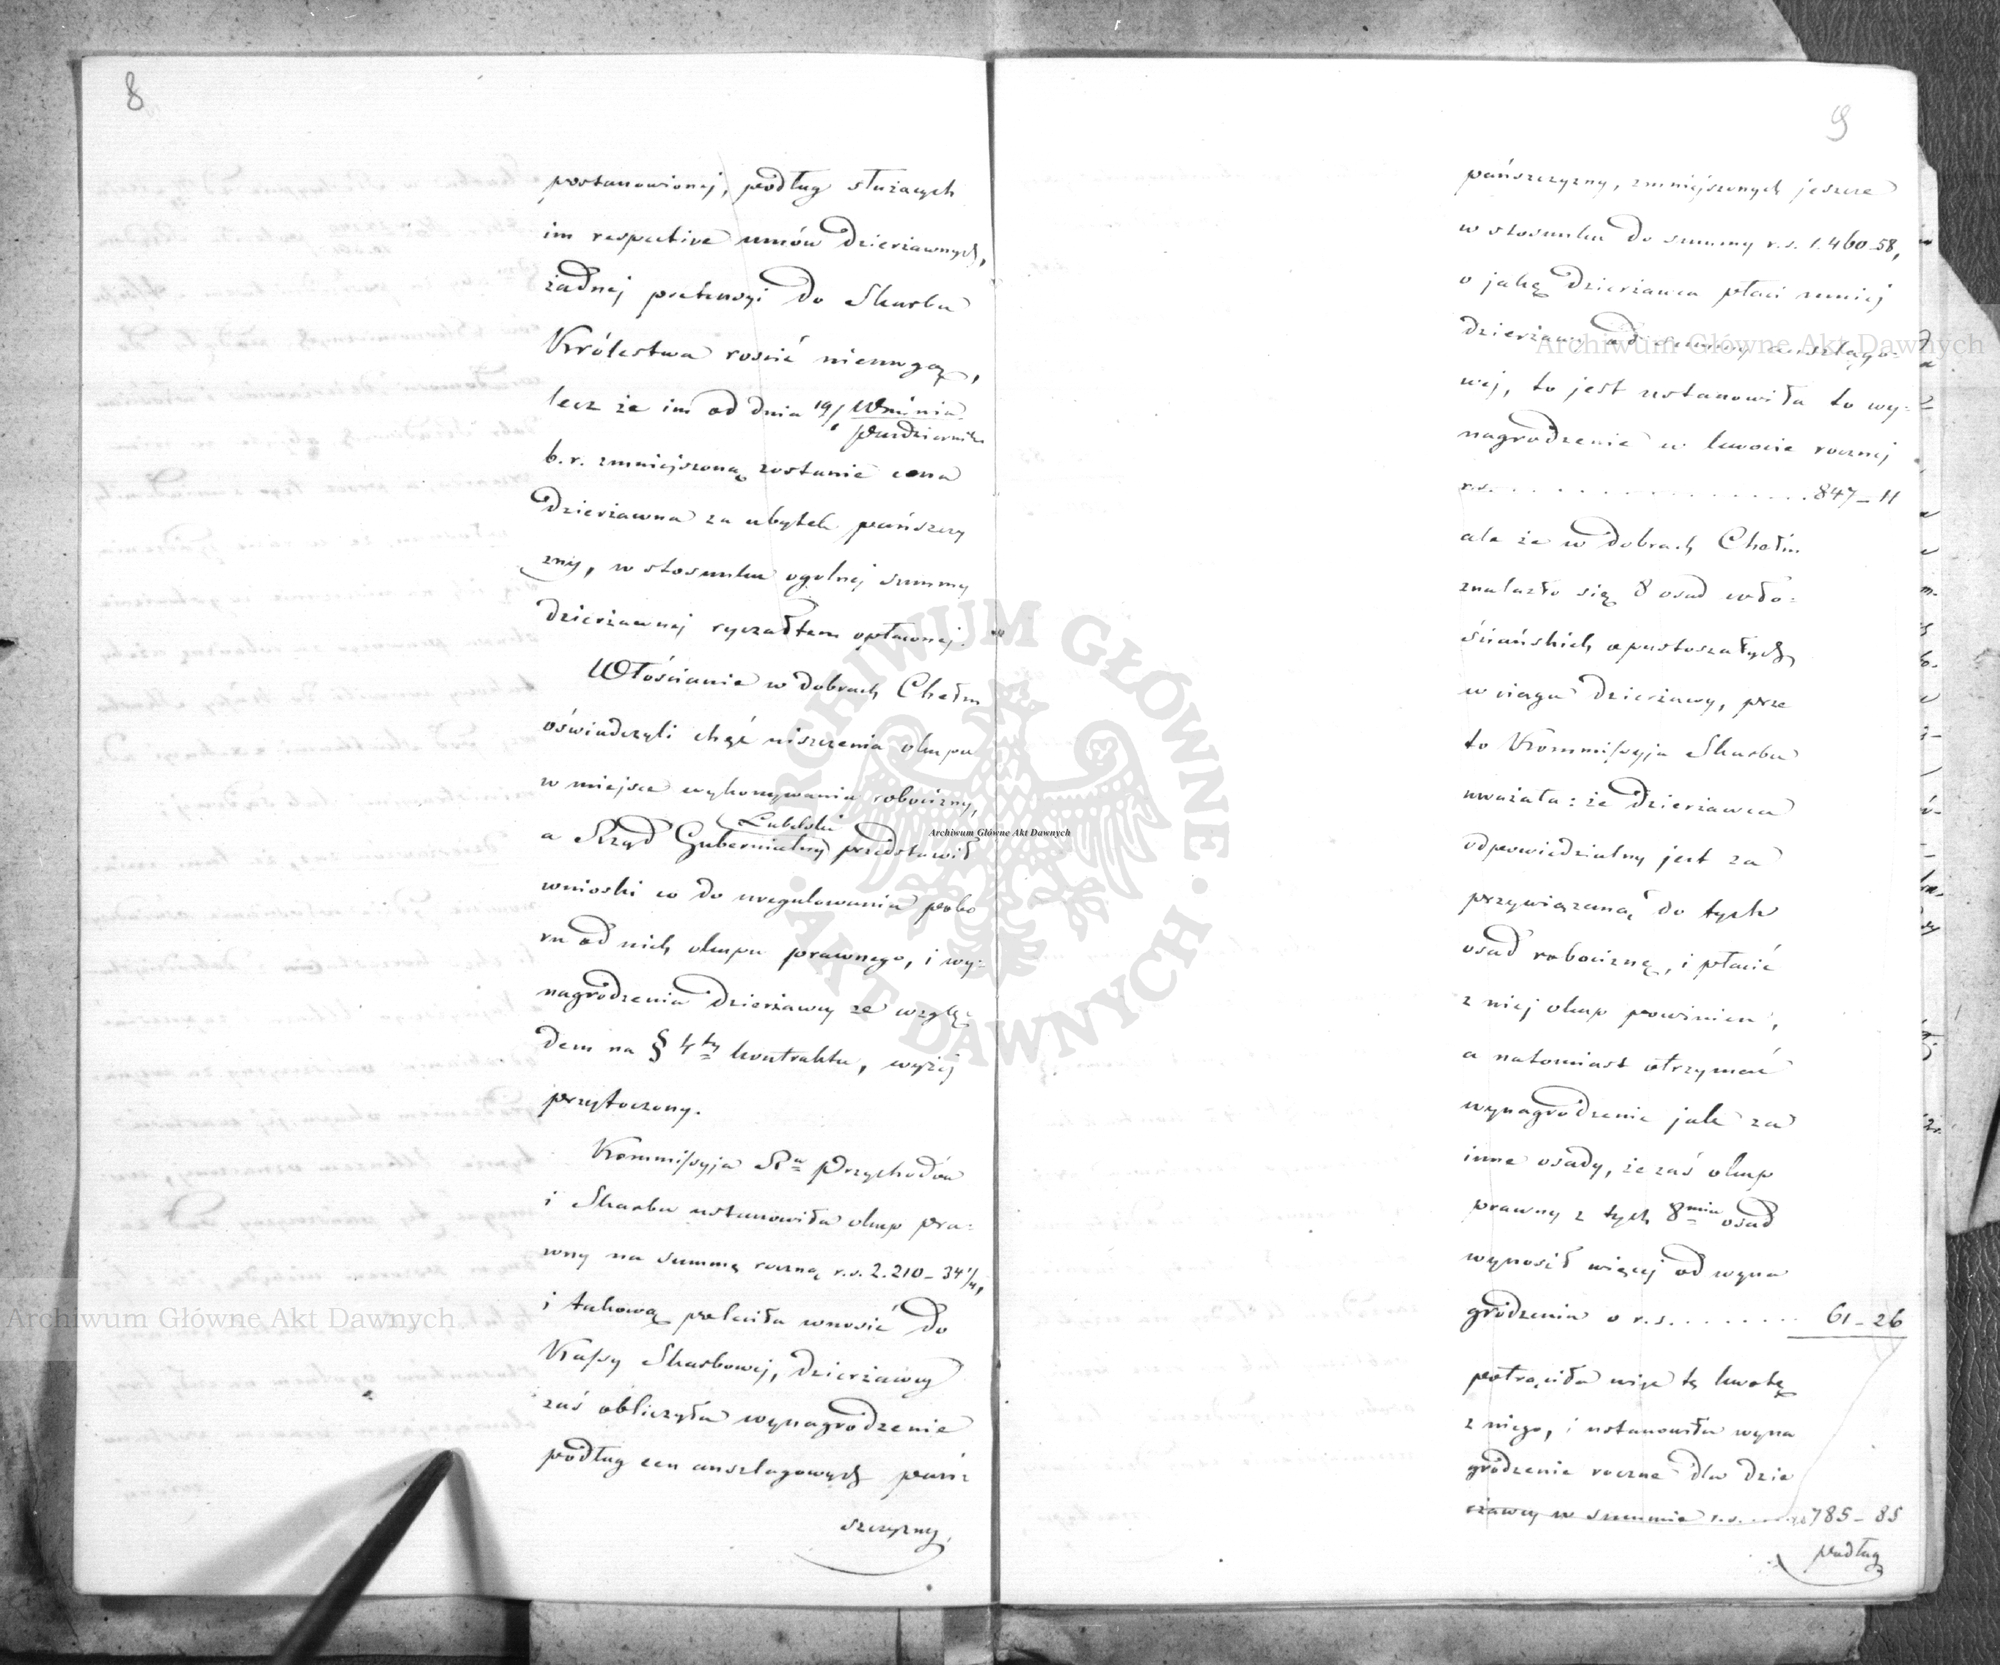 8
postanowionej, podług służących
im respective umów dzierżawnych,
żadnej pretensyi do Skarbu
Królestwa rościć niemogą,
lecz że im od dnia 19/1 Września/Października
b.r. zmniejszoną zostanie cena
dzierżawna za ubytek pańszczy
zny, w stosunku ogólnej summy
dzierżawnej ryczałtem opłaconej.
Włościanie w dobrach Chełm
oświadczyli chęć uiszczenia okupu
w miejsce wykonywania robocizny,
a Rząd Gubernialny Lubelski przedstawił
wnioski co do uregulowania pobo
ru od nich okupu prawnego, i wy=
nagrodzenia dzierżawcy ze wzglę
dem na § 4ty kontraktu, wyżej
przytoczony.
Kommissyja Rn Przychodów
i Skarbu ustanowiła okup pra=
wny na summę roczną r.s. 2.210_34 1/4,
i takową poleciła wnosić do
Kassy Skarbowej, dzierżawcy
zaś obliczyła wynagrodzenie
podług cen anszlagowych pań=
szczyzny,
9
pańszczyzny, zmniejszonych jeszcze
w stosunku do summy r.s. 1.460_58,
o jaką dzierżawca płaci mniej
dzierżawy od summy anszlago=
wej, to jest ustanowiła to wy=
nagrodzenie w kwocie rocznej
r.s. . . . . . . . . . . . . . . . 847_11
ale że w dobrach Chełm
znalazło się 8 osad wło=
ściańskich opustoszałych
w ciągu dzierżawy, prze
to Kommissyja Skarbu
uważała: że dzierżawca
odpowiedzialny jest za
przywiązaną do tych
osad robociznę, i płacić
z niej okup powinien,
a natomiast otrzymać
wynagrodzenie jak za
inne osady, że zaś okup
prawny z tych 8miu osad
wynosił więcej od wyna
grodzenia o r.s. . . . . . . . 61_26
potrąciła więc tę kwotę
z niego, i ustanowiła wyna
grodzenie roczne dla dzie
rżawcy w summie r.s. . . . . 785_85
podług
Archiwum Główne Akt Dawnych
Archiwum Główne Akt Dawnych
Archiwum Główne Akt Dawnych
ARCHIWUM GŁÓWNE · AKT DAWNYCH ·